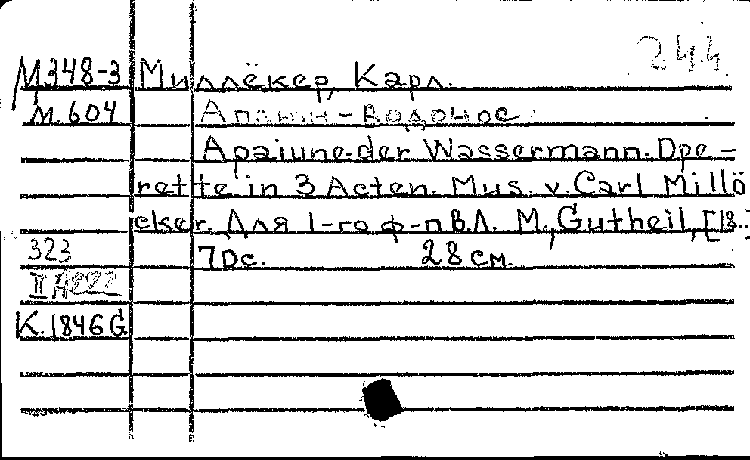 244
М348-3 Миллёкер, Карл.
М.604 Апаюн-Водонос
Apaiune.der Wassermann.Ope-
rette in 3 Acten. Mus. v. Carl Millö
cker. Для 1-го ф-п в.Л. М., Gutheil, [18..]
323 70с. 28см.
II А222
К.1846G